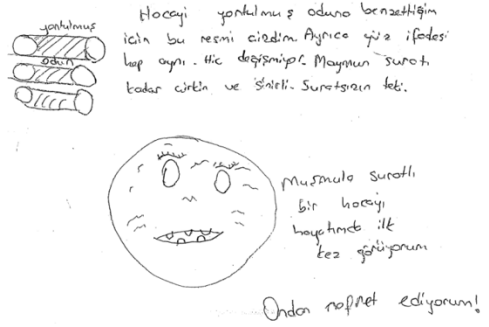 yontulmuş
odun
Hocayı yontulmuş oduna benzettiğim
için bu resmi çizdim. Ayrıca yüz ifadesi
hep aynı. Hiç değişmiyor. Maymun suratı
kadar çirkin ve sinirli. Suratsızın teki.
Muşmula suratlı
bir hocayı
hayatımda ilk
kez görüyorum
Ondan nefret ediyorum!